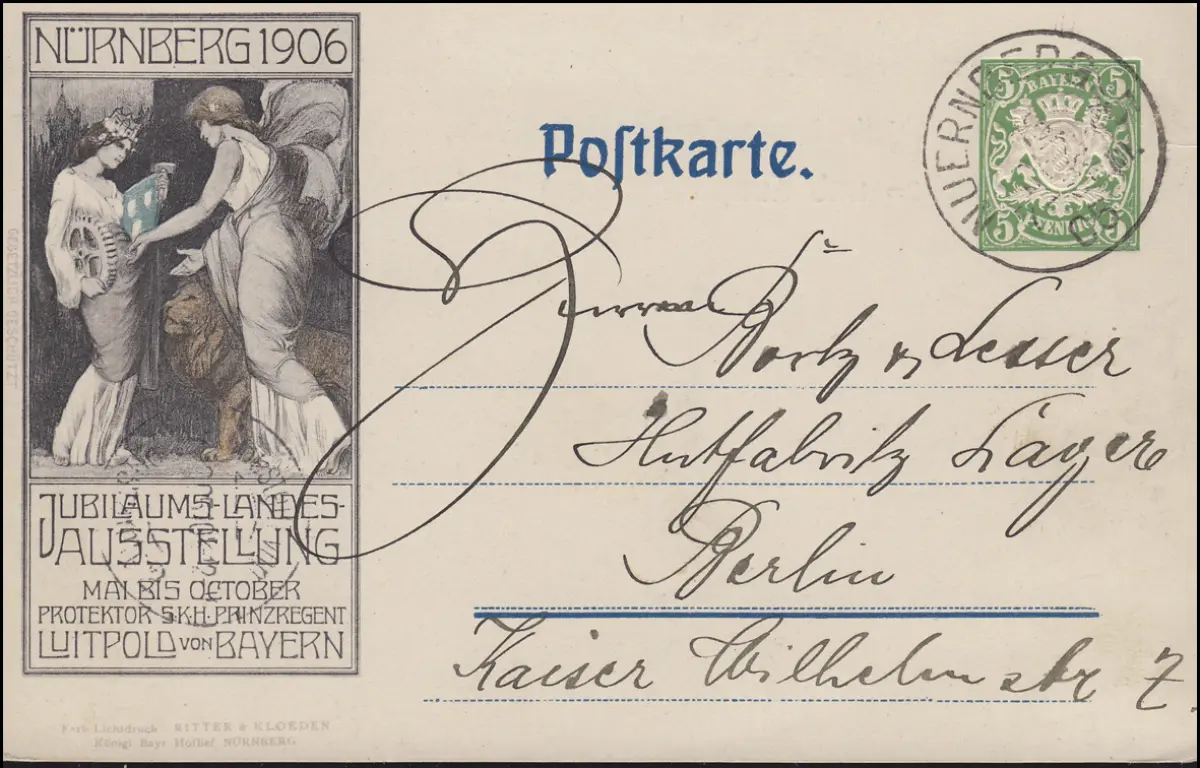 NÜRNBERG 1906
JUBILÄUMS-LANDES-
AUSSTELLUNG
MAI BIS OCTOBER
PROTEKTOR S.K.H. PRINZREGENT
LUITPOLD VON BAYERN
GESETZLICH GESCHÜTZT
Farb Lichtdruck RITTER & KLOEDEN
Königl Bayr Hoflief NÜRNBERG
Postkarte.
5 BAYERN 5
5 PFENNIG 5
NUERNBERG
Herren
Lesser
Hutfabrik Lager
Berlin
Kaiser Wilhelm str 7